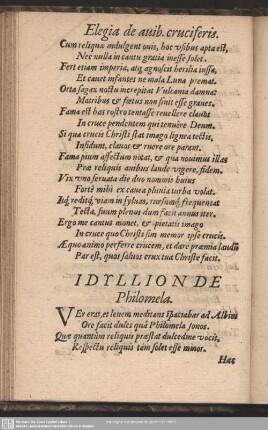 Elegia de avib. cruciferis.
Cum reliquæ indulgent ouis, hoc vsibus apta est,
Nec nulla in cantu gratia inesse solet.
Fert etiam imperia, atq́ agnoscit herilia iussa,
Et cauet infantes ne mala Luna premat.
Orta sagax noctu increpitat Vulcania damna:
Matribus & fœtus non sinit esse graues.
Fama est has rostro tentasse reuellere clauos
In cruce pendentem qui tenuêre Deum.
Si qua crucis Christi stat imago lignea tectis,
Insidunt, clauos & ruere ore parant.
Fama pium affectum notat, & qua nouimus illas
Præ reliquis auibus laude vigere, fidem.
Vix vno seruata die duo nomina huius
Fortè mihi ex cauea pinnia turba volat.
Itq́, reditq́ viam in syluas, rursumq́ frequentat
Tecta, suum plenus dum facit annus iter.
Ergo me cantus monet, & pietatis imago
In cruce quo Christi sim memor ipse crucis.
Æquo animo perferre crucem, et dare præmia laudis
Par est, quos saluos crux tua Christe facit.
IDYLLION DE
Philomela.
VEr erat, et leuem meditans spatiabar ad Albim
Ore facit dulces quà Philomela sonos.
Quæ quantùm reliquis præstat dulcedine vocis,
Respectu reliquis tàm solet esse minor.
Hæc